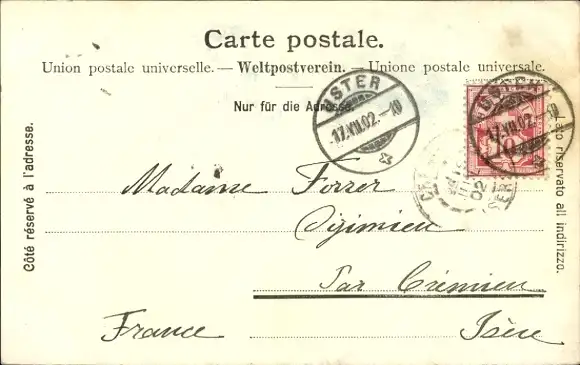 Carte postale.
Union postale universelle. — Weltpostverein. — Unione postale universale.
Nur für die Adresse.
USTER
17.VII.02.–10
USTER
17.VII.02.–10
10
02
Côté réservé à l'adresse.
Lato riservato all indirizzo.
Madame Forrer
Optimieu
Par Crémieu
France Isère